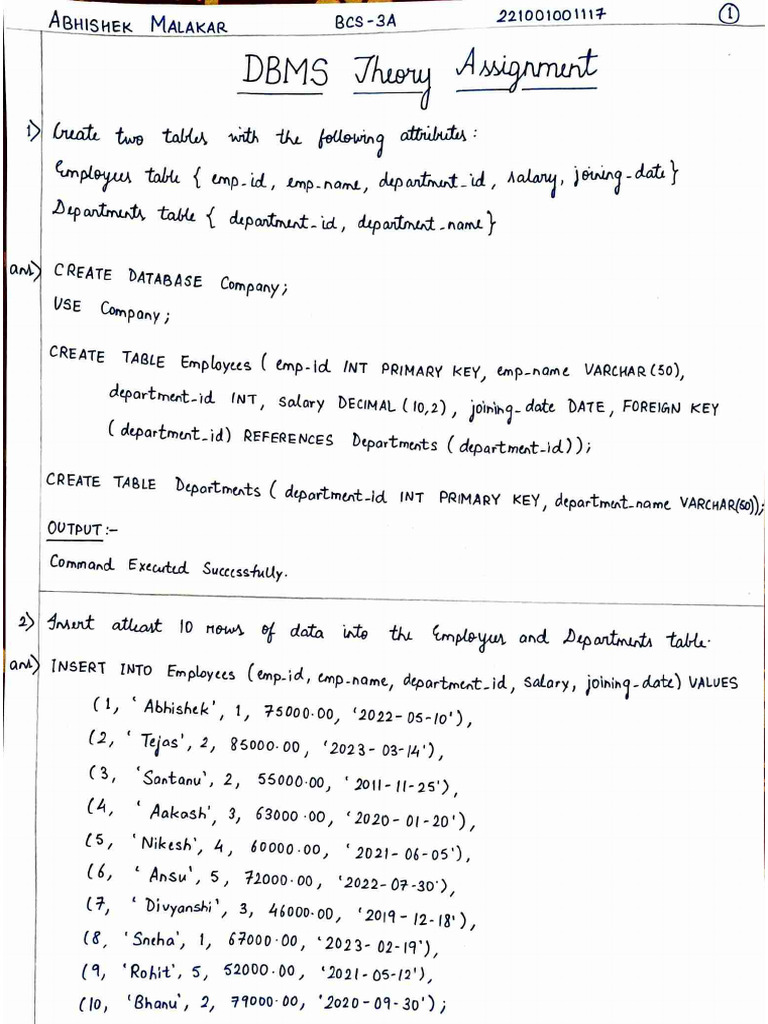 ABHISHEK MALAKAR BCS-3A 221001001117 1
DBMS Theory Assignment
1) Create two tables with the following attributes:
Employees table { emp-id, emp-name, department-id, salary, joining-date }
Departments table { department-id, department-name }
ans) CREATE DATABASE Company;
USE Company;
CREATE TABLE Employees ( emp-id INT PRIMARY KEY, emp-name VARCHAR (50),
department-id INT, salary DECIMAL (10,2), joining-date DATE, FOREIGN KEY
(department-id) REFERENCES Departments (department-id));
CREATE TABLE Departments ( department-id INT PRIMARY KEY, department-name VARCHAR(50));
OUTPUT:-
Command Executed Successfully.
2) Insert atleast 10 rows of data into the Employees and Departments table.
ans) INSERT INTO Employees (emp-id, emp-name, department-id, salary, joining-date) VALUES
(1, 'Abhishek', 1, 75000.00, '2022-05-10'),
(2, 'Tejas', 2, 85000.00, '2023-03-14'),
(3, 'Santanu', 2, 55000.00, '2011-11-25'),
(4, 'Aakash', 3, 63000.00, '2020-01-20'),
(5, 'Nikesh', 4, 60000.00, '2021-06-05'),
(6, 'Ansu', 5, 72000.00, '2022-07-30'),
(7, 'Divyanshi', 3, 46000.00, '2019-12-18'),
(8, 'Sneha', 1, 67000.00, '2023-02-19'),
(9, 'Rohit', 5, 52000.00, '2021-05-12'),
(10, 'Bhanu', 2, 79000.00, '2020-09-30');